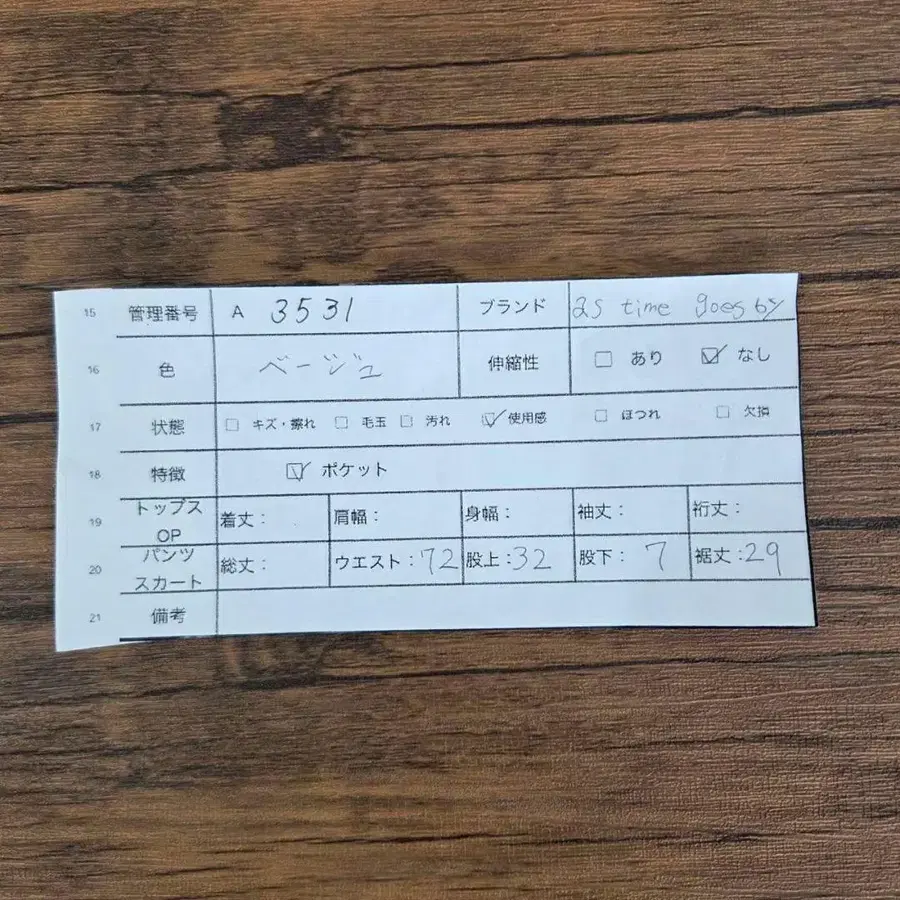 15 管理番号 A 3531 ブランド as time goes by
16 色 ベージュ 伸縮性 ☐ あり ☑ なし
17 状態 ☐ キズ・擦れ ☐ 毛玉 ☐ 汚れ ☑ 使用感 ☐ ほつれ ☐ 欠損
18 特徴 ☑ ポケット
19 トップス OP 着丈: 肩幅: 身幅: 袖丈: 裄丈:
20 パンツ スカート 総丈: ウエスト:72 股上:32 股下: 7 裾丈:29
21 備考